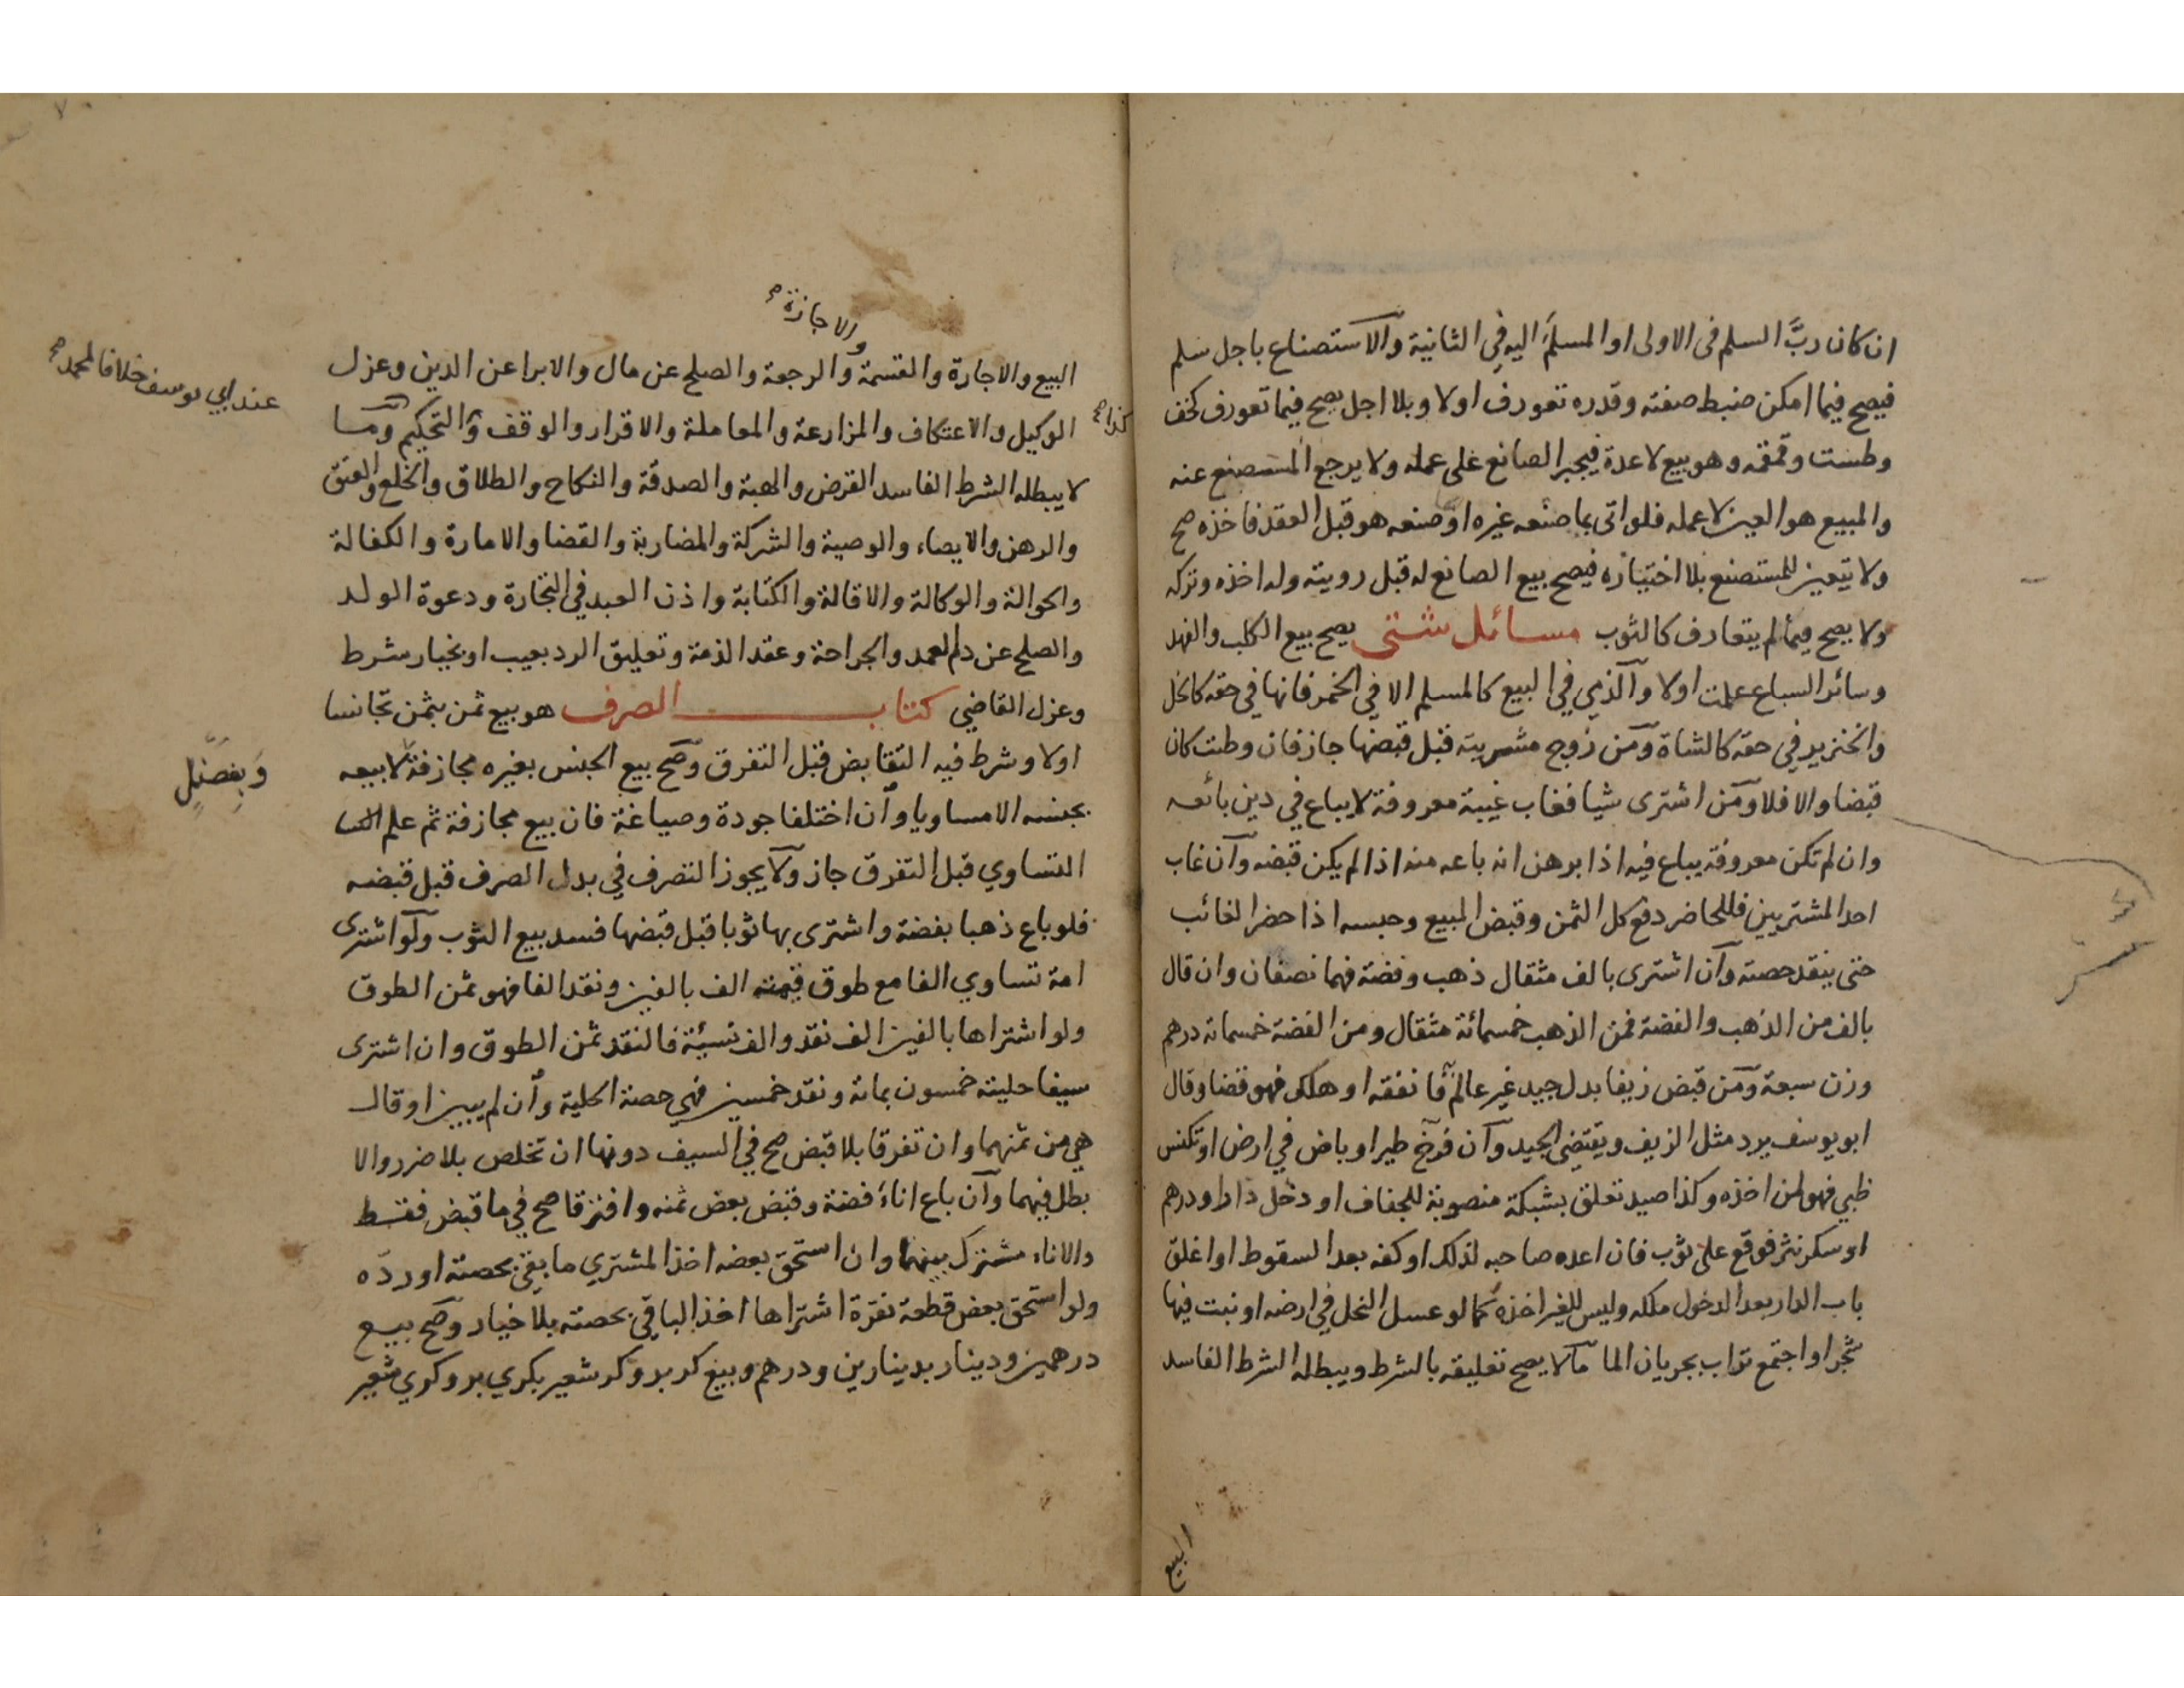 ان كان ربَّ السلم فى الاولى او المسلمَ اليه في الثانية والاستصناع باجل سلم
فيصح فيما امكن ضبط صفته وقدره تعورف اولا وبلا اجل يصح فيما تعورف كخف
وطست وقمقمه وهو بيع لا عدة فيجبر الصانع على عمله ولا يرجع المستصنع عنه
والمبيع هو العين لا عمله فلو اتى بما صنعه غيره او صنعه هو قبل العقد فاخذه صح
ولا يتعين للمستصنع بلا اختياره فيصح بيع الصانع له قبل رويته وله اخذه وتركه
ولا يصح فيما لم يتعارف كالثوب مسائل شتى يصح بيع الكلب والفهد
وسائر السباع علمت اولا والذمي في البيع كالمسلم الا في الخمر فانها في حقه كالخل
والخنزير في حقه كالشاة ومن زوج مشريته قبل قبضها جاز فان وطئت كان
قبضا والا فلا ومن اشترى شيا فغاب غيبة معروفة لا يباع في دين بائعه
وان لم تكن معروفة يباع فيه اذا برهن انه باعه منه اذا لم يكن قبضه وان غاب
احد المشتريين فللحاضر دفع كل الثمن وقبض المبيع وحبسه اذا حضر الغائب
حتى ينقد حصته وان اشترى بالف مثقال ذهب وفضة فهما نصفان وان قال
بالف من الذهب والفضة فمن الذهب خمسمائة مثقال ومن الفضة خمسمائة درهم
وزن سبعة ومن قبض زيفا بدل جيد غير عالم فانفقه او هلك فهو قضا وقال
ابو يوسف يرد مثل الزيف ويقتضي الجيد وان فرّخ طير او باض في ارض او تكنس
ظبي فهو لمن اخذه وكذا صيد تعلق بشبكة منصوبة للجفاف او دخل دارا ودرهم
او سكر نثر فوقع على ثوب فان اعده صاحبه لذلك او كفه بعد السقوط او اغلق
باب الدار بعد الدخول ملكه وليس للغير اخذه كما لو عسل النحل في ارضه او نبت فيها
شجر او اجتمع تراب بجريان الما ما لا يصح تعليقه بالشرط ويبطله الشرط الفاسد
البيع
والاجازة صح
البيع والاجارة والقسمة والرجعة والصلح عن مال والابرا عن الدين وعزل
عند ابي يوسف خلافا لمحمد صح
كذا صح
الوكيل والاعتكاف والمزارعة والمعاملة والاقرار والوقف والتحكيم وما
لا يبطله الشرط الفاسد القرض والهبة والصدقة والنكاح والطلاق والخلع والعتق
والرهن والايصاء والوصية والشركة والمضاربة والقضا والامارة والكفالة
والحوالة والوكالة والاقالة والكتابة واذن العبد في التجارة ودعوة الولد
والصلح عن دم العمد والجراحة وعقد الذمة وتعليق الرد بعيب او بخيار شرط
وعزل القاضي كتاب الصرف هو بيع ثمن بثمن تجانسا
اولا وشرط فيه التقابض قبل التفرق وصح بيع الجنس بغيره مجازفة لا بيعه
وَبِفَضْلٍ
بجنسه الا مساويا وان اختلفا جودة وصياغة فان بيع مجازفة ثم علم
التساوي قبل التفرق جاز ولا يجوز التصرف في بدل الصرف قبل قبضه
فلو باع ذهبا بفضة واشترى بها ثوبا قبل قبضها فسد بيع الثوب ولو اشترى
امة تساوي الفا مع طوق قيمته الف بالفين ونقد الفا فهو ثمن الطوق
ولو اشتراها بالفين الف نقد والف نسيئة فالنقد ثمن الطوق وان اشترى
سيفا حليته خمسون بمائة ونقد خمسين فهي حصة الحلية وان لم يبين او قال
هي من ثمنهما وان تفرقا بلا قبض صح في السيف دونها ان تخلص بلا ضرر والا
بطل فيهما وان باع اناءً فضة وقبض بعض ثمنه وافترقا صح في ما قبض فقط
والاناء مشترك بينهما وان استحق بعضه اخذ المشتري ما بقي بحصته او ردّه
ولو استحق بعض قطعة نقرة اشتراها اخذ الباقي بحصته بلا خيار وصح بيع
درهمين ودينار بدينارين ودرهم وبيع كر بر وكر شعير بكري بر وكري شعير